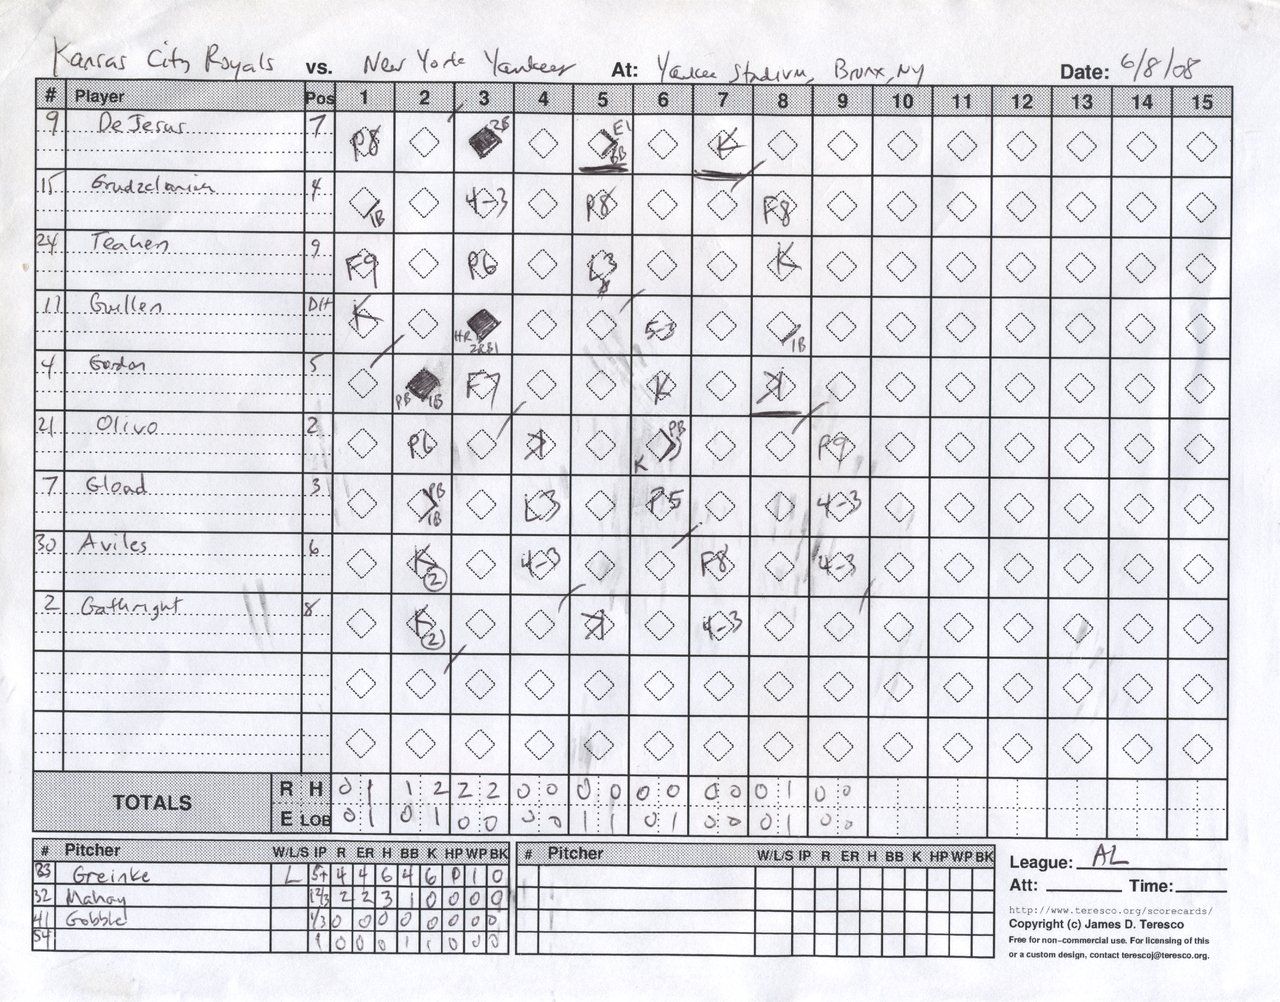 Kansas City Royals vs. New York Yankees At: Yankee Stadium, Bronx, NY Date: 6/8/08
# Player Pos 1 2 3 4 5 6 7 8 9 10 11 12 13 14 15
9 DeJesus 7 P8 2B E1 BB K
15 Grudzelanick 4 1B 4-3 P8 F8
24 Teahen 9 F9 P6 L3 K
11 Guillen DH K HR 2RBI 5-3 1B
4 Gordon 5 PB 1B F7 K K
21 Olivo 2 P6 K K PB P9
7 Gload 3 PB 1B L3 P5 4-3
30 Aviles 6 K 2 4-3 F8 4-3
2 Gathright 8 K 2 K 4-3
TOTALS R H 0 1 1 2 2 2 0 0 0 0 0 0 0 0 0 1 0 0
E LOB 0 1 0 1 0 0 0 0 1 1 0 1 0 0 0 1 0 0
# Pitcher W/L/S IP R ER H BB K HP WP BK # Pitcher W/L/S IP R ER H BB K HP WP BK
Greinke L 5+ 4 4 6 4 6 0 1 0
32 Mahay 1 2/3 2 2 3 1 0 0 0 0
41 Gobble 1/3 0 0 0 0 0 0 0 0
54 1 0 0 0 1 1 0 0 0
League: AL
Att: Time:
http://www.teresco.org/scorecards/
Copyright (c) James D. Teresco
Free for non-commercial use. For licensing of this
or a custom design, contact terescoj@teresco.org.